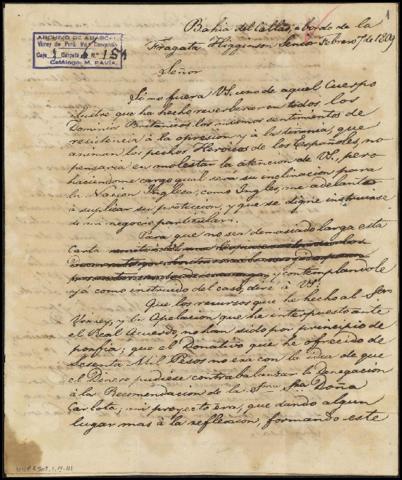 ARCHIVO DE ABASCAL
Virrey de Perú
Caja 1 Carpeta 4 Nº 154
Catálogo, M. PAVIA.
1
Bahia del Callao, a bordo de la
Fragata Higginson Senior Febrero 7 de 1809
Señor
Si no fuera VS. uno de aquel Cuerpo
Ilustre que ha hecho reverberar en todos los
Dominios Britanicos los mismos sentimientos de
resistencia à la opresion y à la tirania, que
animan los pechos Heroicos de los Españoles, no
pensaria en molestar la atencion de VS, pero
haciendome cargo qual será su inclinacion para
la Nacion Inglesa; como Ingles, me adelanto
à suplicar su proteccion, y que se digne instruirse
de mi negocio particular.
Para que no sea demasiado larga esta
Carta
y contemplandole
yá como instruido del caso, diré à VS.
Que los recursos que he hecho al Sor
Virrey, y la Apelacion que he interpuesto ante
el Real Acuerdo, no han sido por principio de
porfia; que el Donativo que he ofrecido de
sesenta Mil Pesos no era con la idea de que
el Dinero pudiese contrabalanzar la Denegacion
à la Recomendacion de la Sma Sra Doña
Carlota; mi proyecto era, que dando algun
lugar mas à la reflexion, formando este